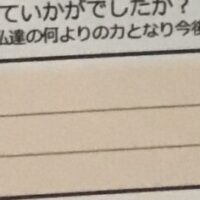 ていかがでしたか？
私達の何よりの力となり今後